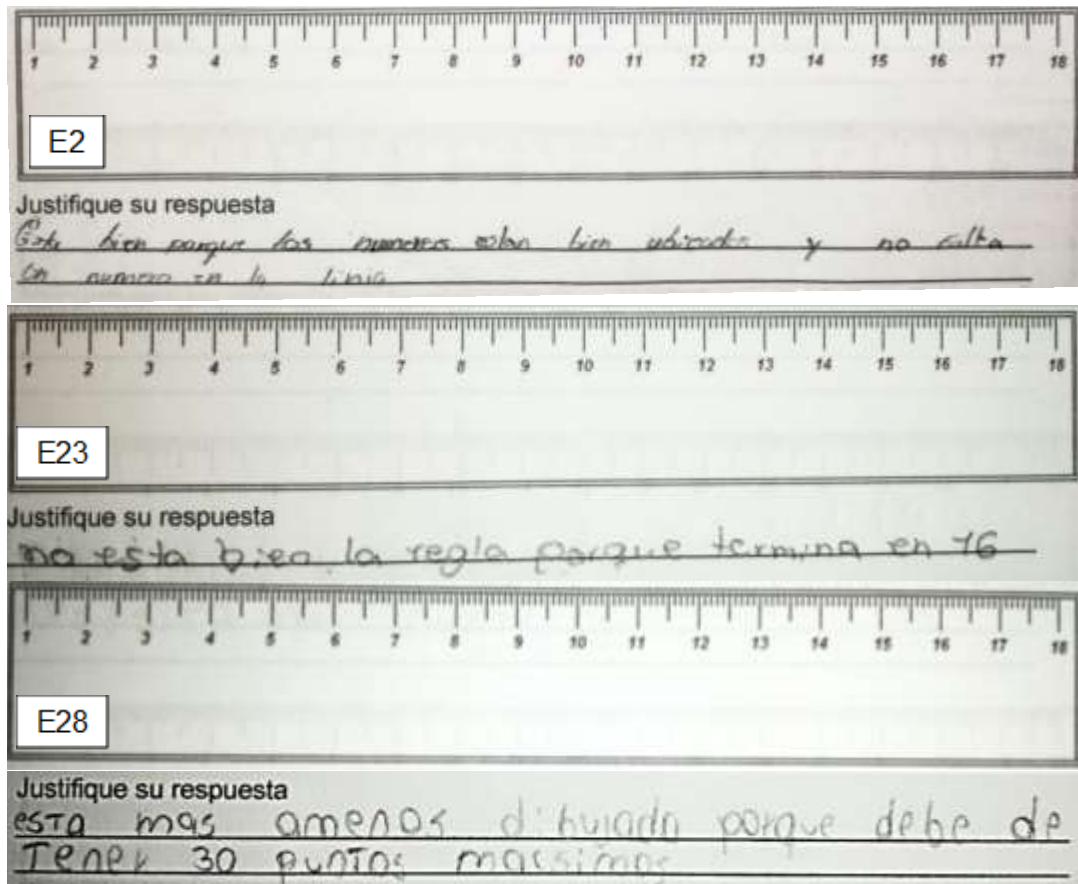 1 2 3 4 5 6 7 8 9 10 11 12 13 14 15 16 17 18
E2
Justifique su respuesta
Esta bien porque los numeros estan bien ubicados y no falta
un numero en la linia
1 2 3 4 5 6 7 8 9 10 11 12 13 14 15 16 17 18
E23
Justifique su respuesta
no esta bien la regla porque termina en 16
1 2 3 4 5 6 7 8 9 10 11 12 13 14 15 16 17 18
E28
Justifique su respuesta
esta mas amenos dibujada porque debe de
Tener 30 puntos macsimos